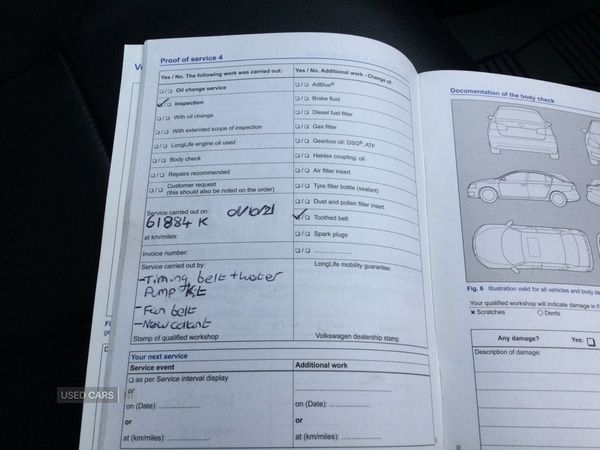 Proof of service 4
Yes / No. The following work was carried out:
❑/❑ Oil change service
✓/❑ Inspection
❑/❑ With oil change
❑/❑ With extended scope of inspection
❑/❑ LongLife engine oil used
❑/❑ Body check
❑/❑ Repairs recommended
❑/❑ Customer request
(this should also be noted on the order)
Service carried out on: 01/10/21
61884 K
at km/miles:
Invoice number:
Service carried out by:
-Timing belt + water
Pump Kit
- Fan belt
- New coolant
Stamp of qualified workshop
Yes / No. Additional work - Change of:
❑/❑ AdBlue®
❑/❑ Brake fluid
❑/❑ Diesel fuel filter
❑/❑ Gas filter
❑/❑ Gearbox oil: DSG®, ATF
❑/❑ Haldex coupling: oil
❑/❑ Air filter insert
❑/❑ Tyre filler bottle (sealant)
❑/❑ Dust and pollen filter insert
✓/❑ Toothed belt
❑/❑ Spark plugs
❑/❑ ....................
LongLife mobility guarantee:
Volkswagen dealership stamp
Your next service
Service event
❑ as per Service interval display
or
on (Date): ....................
or
at (km/miles): ....................
Additional work
....................
on (Date): ....................
or
at (km/miles): ....................
Documentation of the body check
Fig. 6 Illustration valid for all vehicles and body
Your qualified workshop will indicate damage in
× Scratches ○ Dents
Any damage? Yes: ❑
Description of damage:
USED CARS